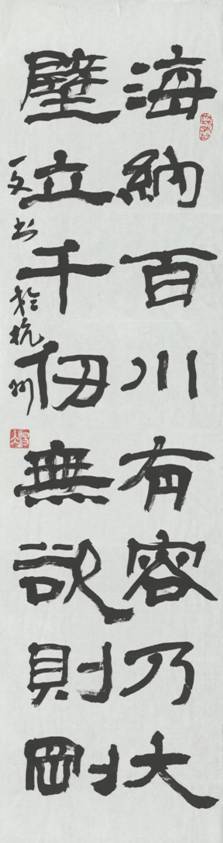 海納百川有容乃大
壁立千仞無欲則剛
文书於杭州